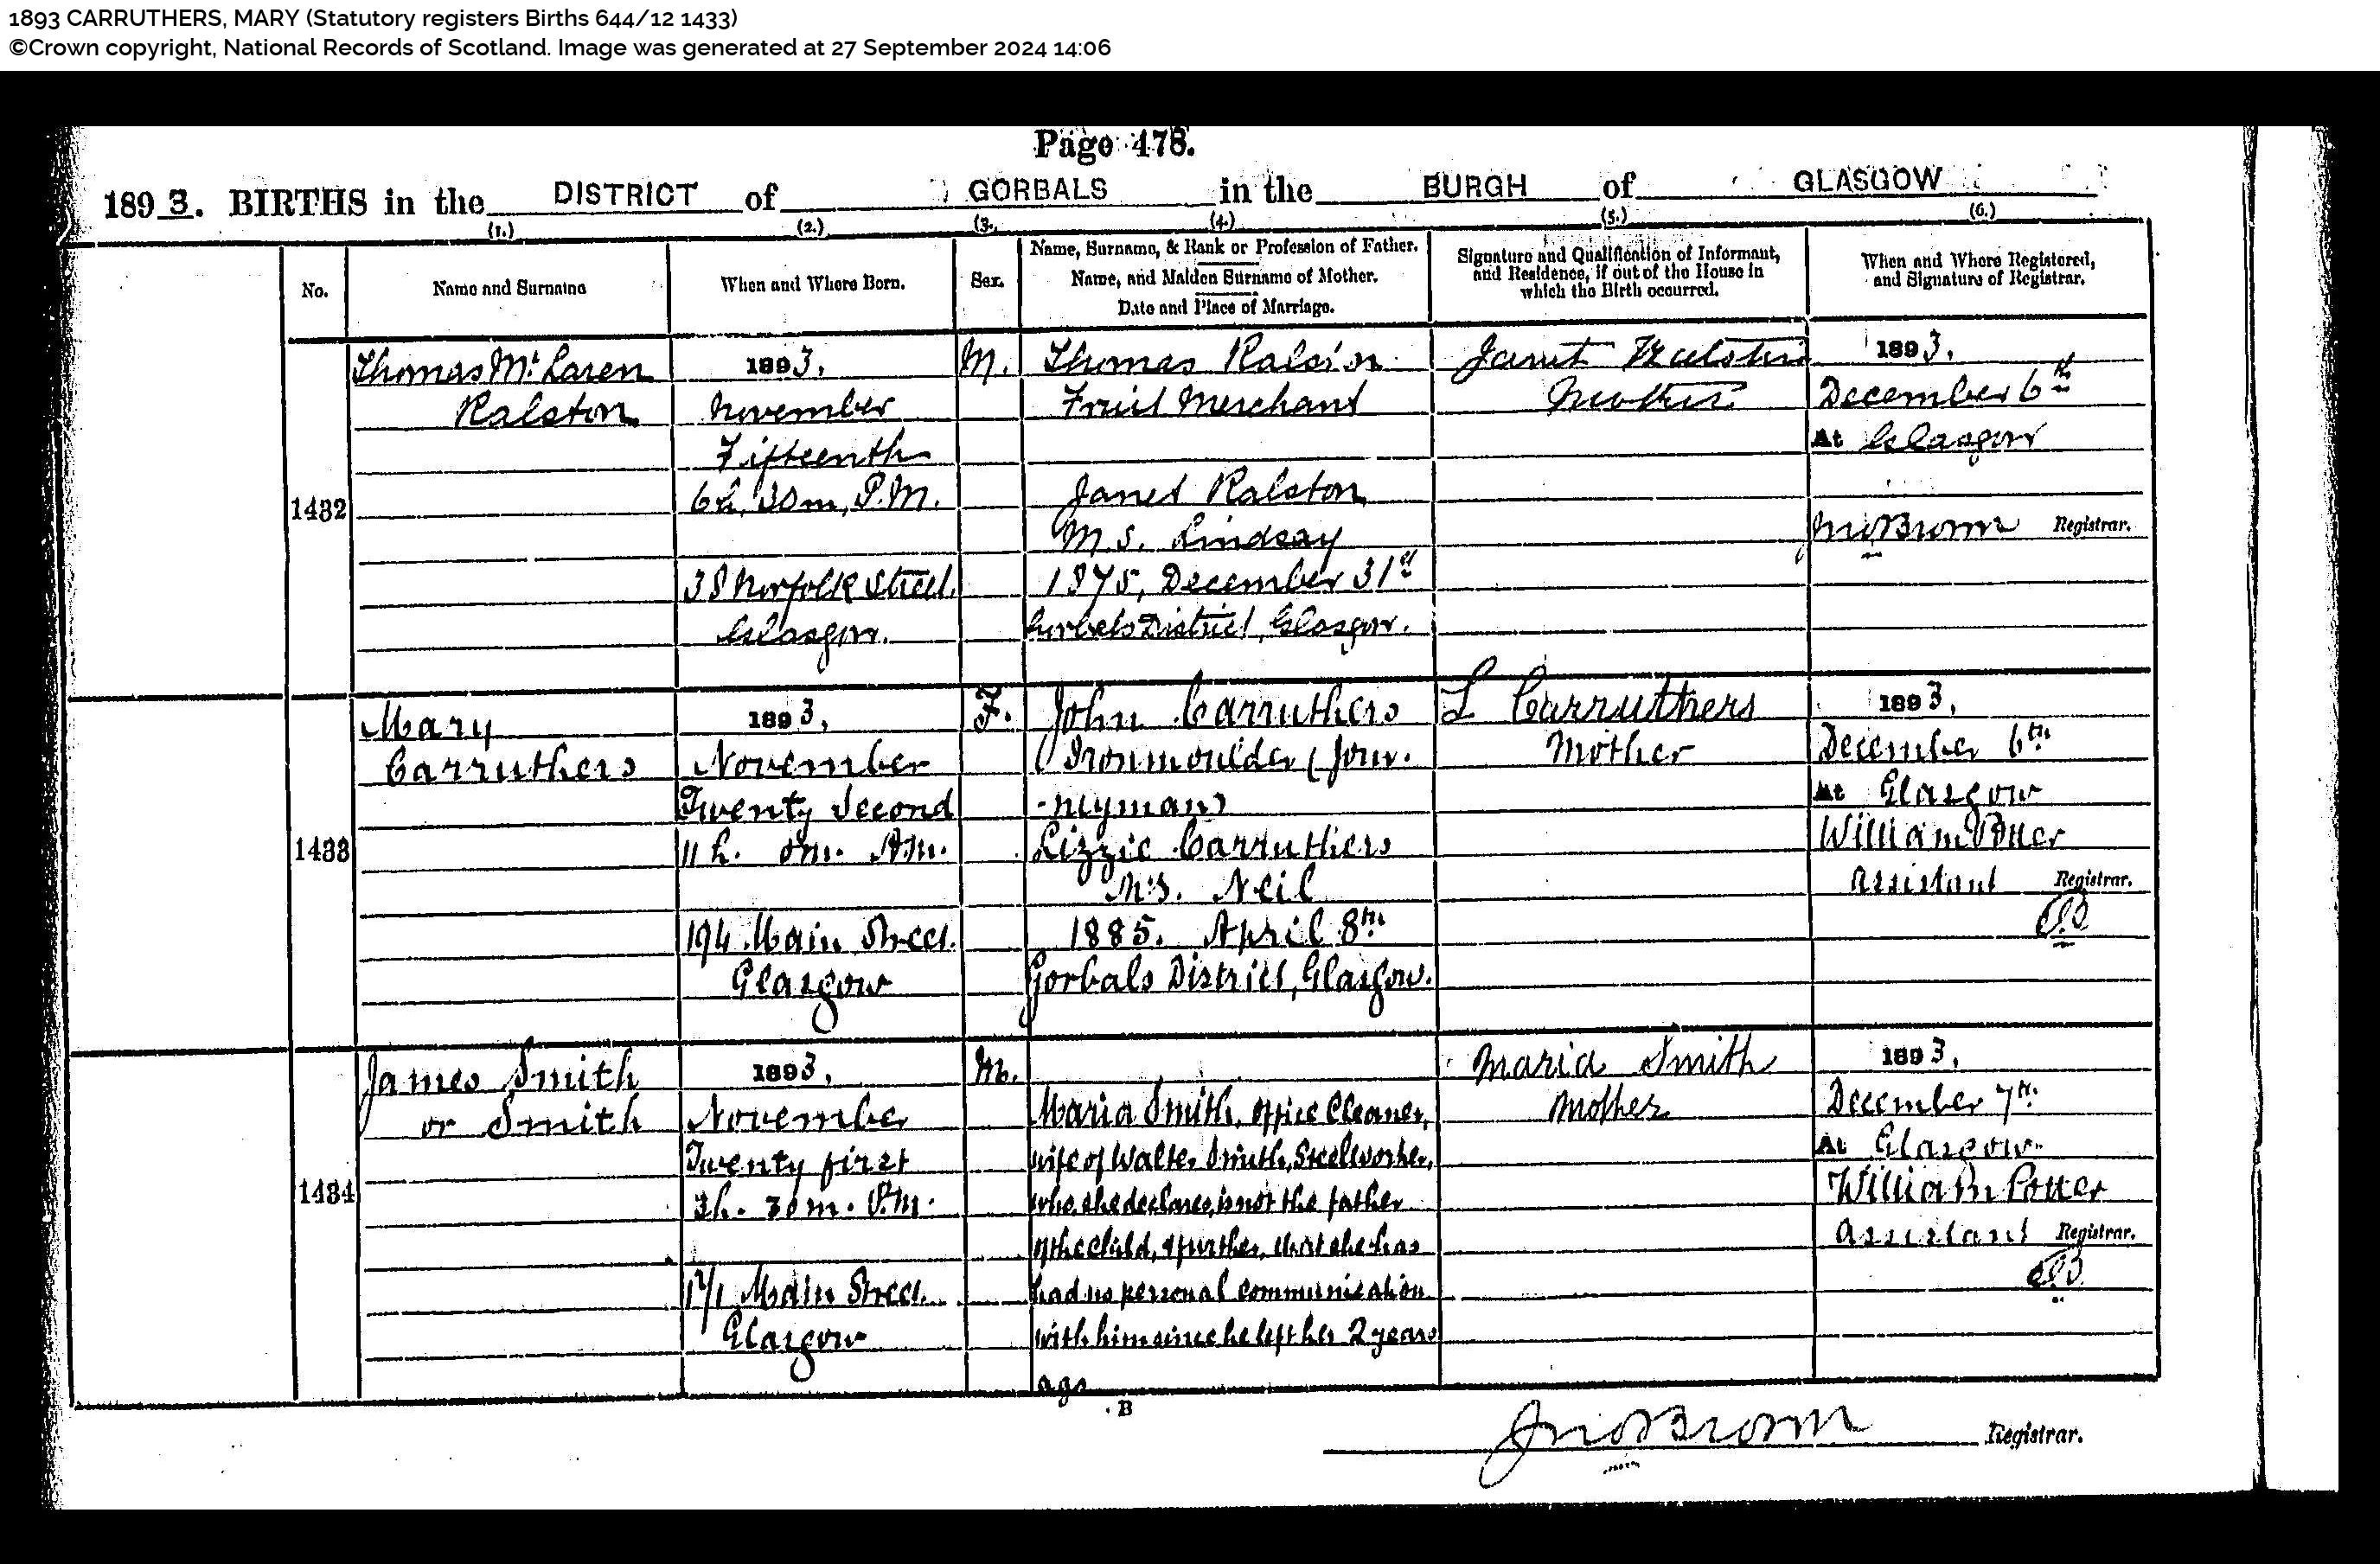 1893 CARRUTHERS, MARY (Statutory registers Births 644/12 1433)
©Crown copyright, National Records of Scotland. Image was generated at 27 September 2024 14:06
Page 478.
1893. BIRTHS in the DISTRICT of GORBALS in the BURGH of GLASGOW
(1.) (2.) (3. (4.) (5.) (6.)
No.
Name and Surname
When and Where Born.
Sex.
Name, Surname, & Rank or Profession of Father.
Name, and Maiden Surname of Mother.
Date and Place of Marriage.
Signature and Qualification of Informant,
and Residence, if out of the House in
which the Birth occurred.
When and Where Registered,
and Signature of Registrar.
1432
Thomas McLaren
Ralston
1893,
November
Fifteenth
6h, 30m, P.M.
38 Norfolk Street,
Glasgow.
M.
Thomas Ralston
Fruit Merchant
Janet Ralston
M.S. Lindsay
1875, December 31st
Gorbals District, Glasgow.
Janet Ralston
Mother
1893,
December 6th
At Glasgow
Jno Brown Registrar.
1433
Mary
Carruthers
1893,
November
Twenty Second
11h. 0m. A.M.
194 Main Street.
Glasgow
F.
John Carruthers
Ironmoulder (Jour-
-neyman)
Lizzie Carruthers
M.S. Neil
1885. April 8th
Gorbals District, Glasgow.
L Carruthers
Mother
1893,
December 6th
At Glasgow
William Potter
Assistant Registrar.
1434
James Smith
or Smith
1893,
November
Twenty first
3h. 30m. P.M.
Main Street.
Glasgow
M.
Maria Smith, Office Cleaner,
wife of Walter Smith, Steelworker,
who, she declares, is not the father
of the child, & further, that she has
had no personal communication
with him since he left her 2 years
ago
Maria Smith
Mother
1893,
December 7th
At Glasgow
William Potter
Assistant Registrar.
B
Jno Brown Registrar.